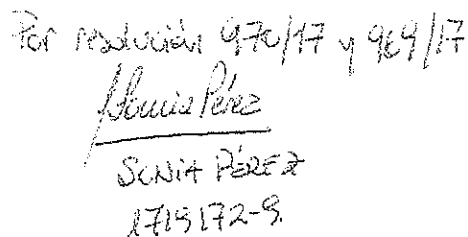 Por resolución 970/17 y 969/17
Sonia Pérez
SONIA PÉREZ
1719172-9.